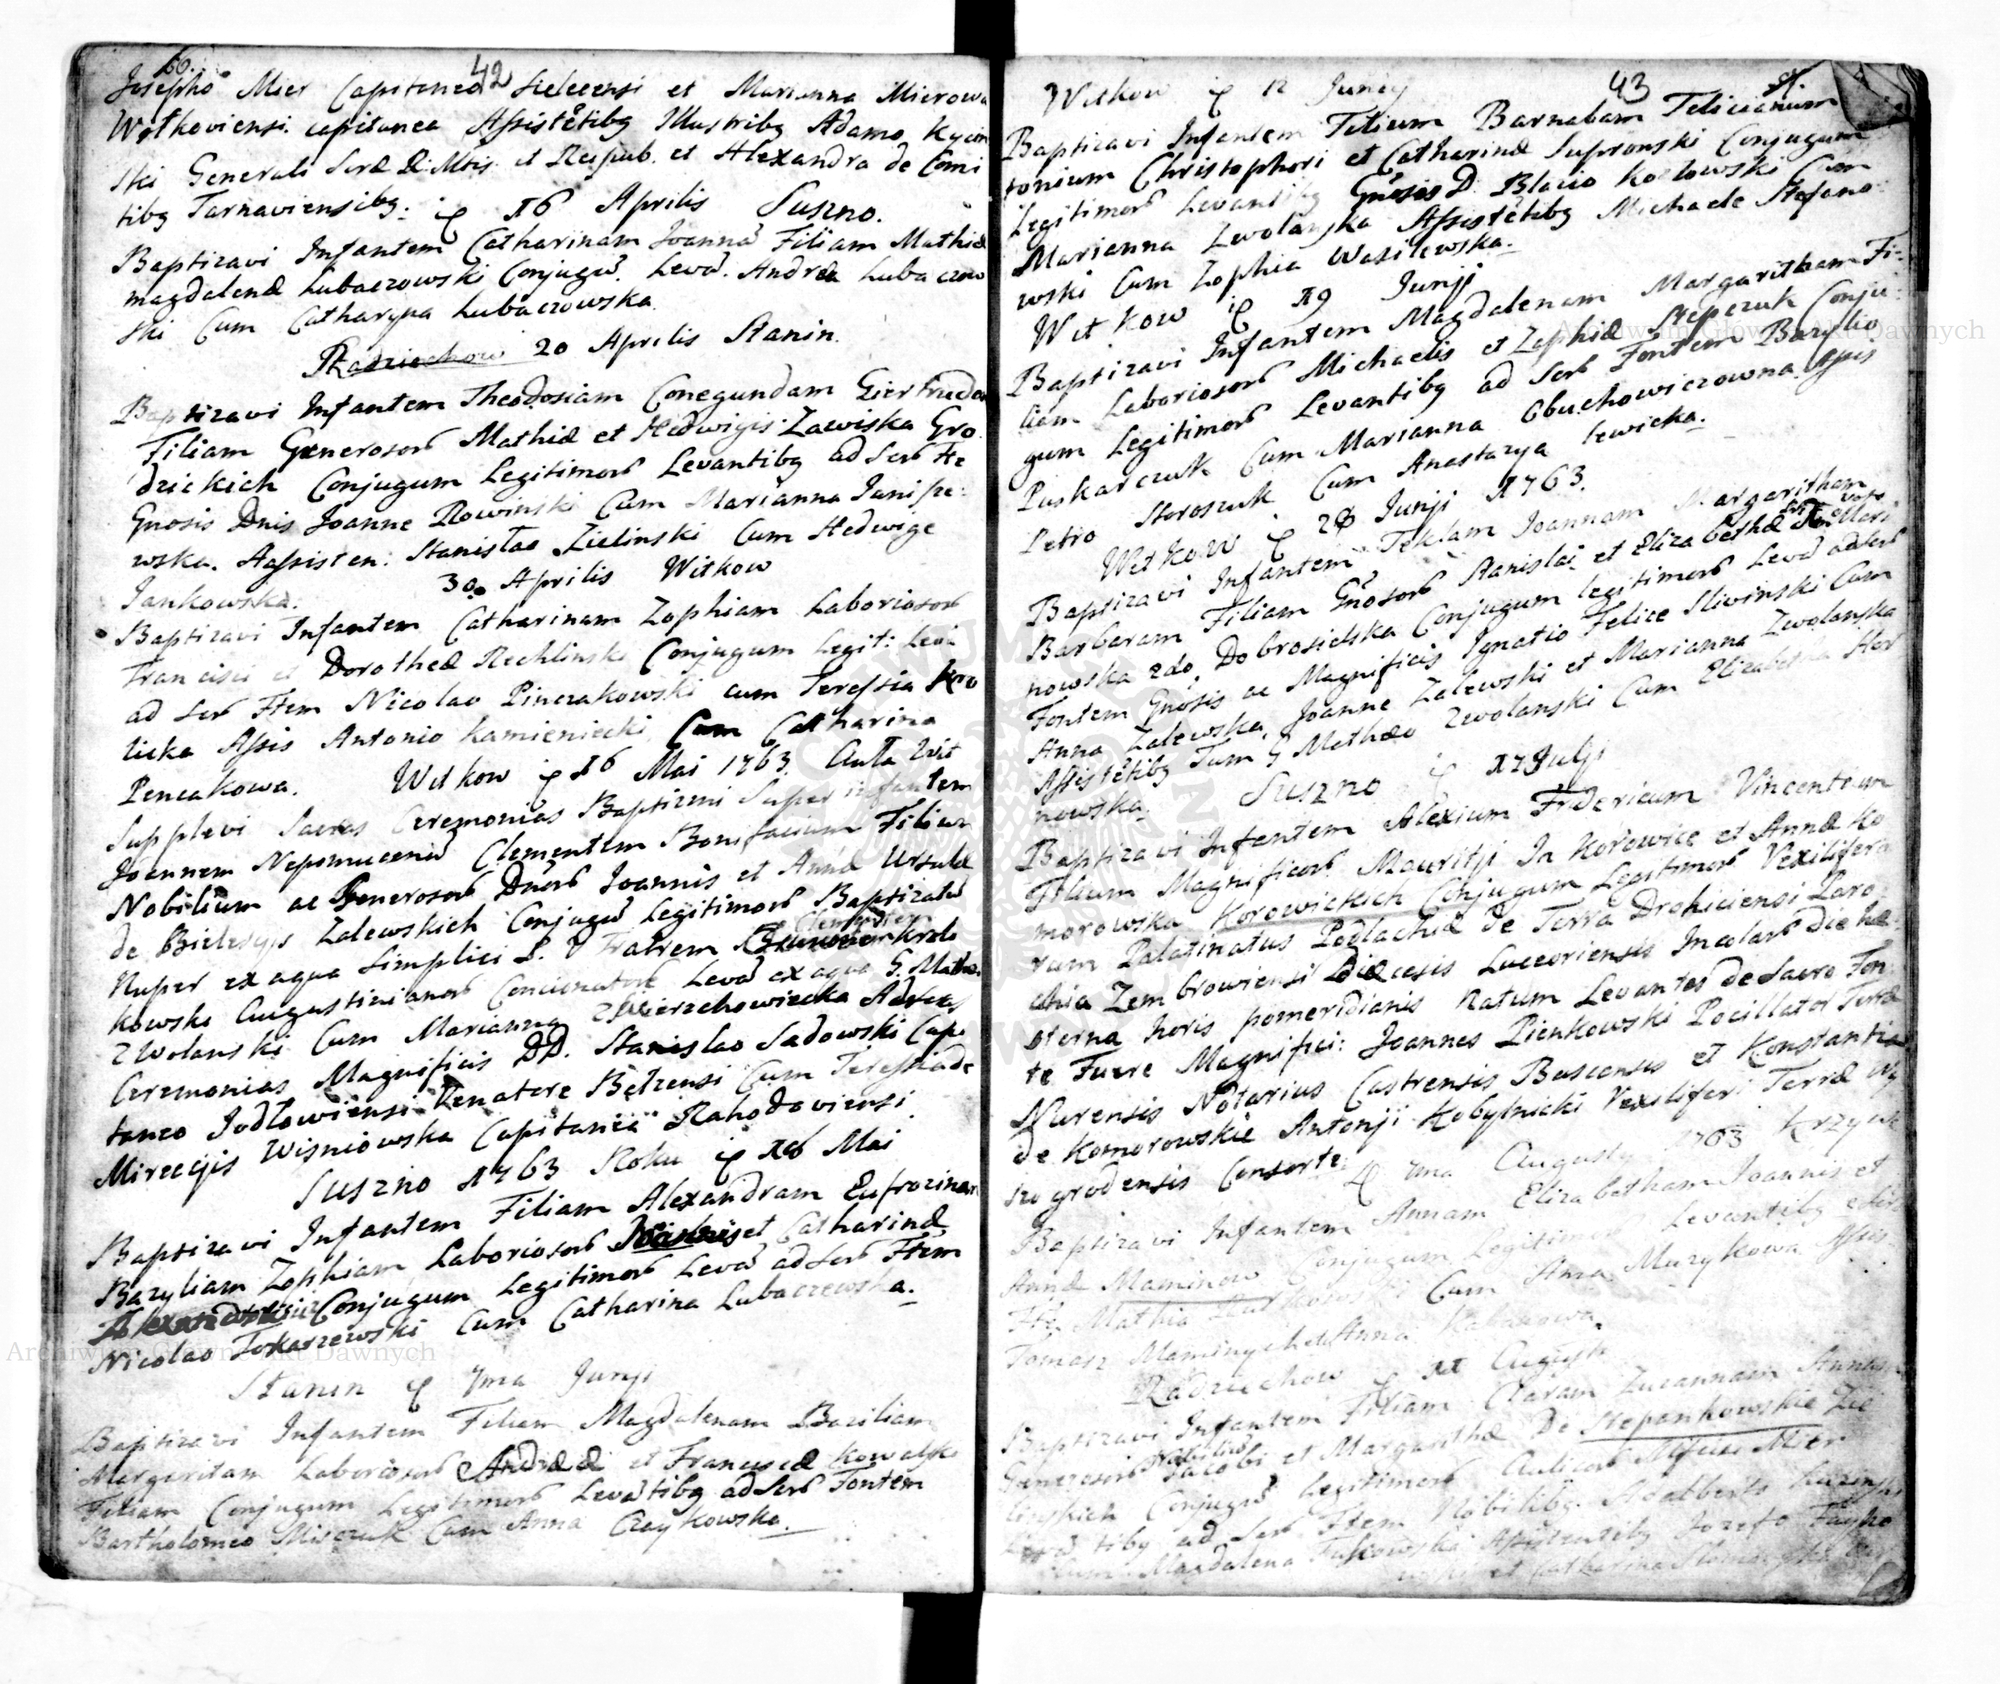 60.
42
Josepho Mier Capitaneo Sielecensi et Marianna Mierowa
Witkoviensi capitanea Assistetibg Illustribg Adamo Kycin
ski Generali Serae R: Mtis et Reipub. et Alexandra de Comi
tibg Tarnaviensibg. 16 Aprilis Suszno.
Baptizavi Infantem Catharinam Joanna Filiam Mathiae
magdalenae Lubaczowski Conjugu. Leva. Andrea Lubaczow
ski Cum Catharyna Lubaczowska
Radziechow 20 Aprilis Stanin.
Baptizavi Infantem Theodosiam Conegundam Giertruden
Filiam Generosorb Mathiae et Hedwigis Zawiska Gro
dzickich Conjugum Legitimorb Levantibg ad Serb Fte
Gnosis Dnis Joanne Rowinski Cum Marianna Janisze:
wska. Assisten: Stanislao Zielinski Cum Hedwige
Jankowska. 30. Aprilis Witkow
Baptizavi Infantem Catharinam Zophiam Laboriosorb
Francisci et Dorotheae Rechlinski Conjugum Legit: Leva
ad Serb Ftem Nicolao Pinczakowski cum Teressia Kro
licka Assis Antonio Kamieniecki Cum Catharina
Pencakowa. Witkow 16 Mai 1763. Aula Wit
Supplevi Sacras Ceremonias Baptizmi Super infantem
Joannem Nepomucenu Clementem Bonifacium Filium
Nobilium ac Generosorb Dnorb Joannis et Anna Ursulae
de Bielscys Zalewskich Conjugu legitimorb Baptizatu
Nuper ex aqua Simplici P. V Fratrem Krzla
kowski Augustinianorb Concionatore Leva ex aqua G. Mathe
Zwolanski Cum Marianna Zwierzchowiecka Ad Sacras
Ceremonias Magnificis DD. Stanislao Sadowski Capi
taneo Jodlowiensi Venatore Belzensi Cum Teressia de
Mireccjis Wisniowska Capitanea Rahodoviensi.
Suszno 1763 Roku 16 Mai
Baptizavi Infantem Filiam Alexandram Eufrozinam
Bazyliam Zophiam Laboriosorb et Catharinae
Conjugum Legitimorb Leva ad Serb Ftem
Nicolao Tokarzewski Cum Catharina Lubaczewska.
Stanin 7ma Junji
Baptizavi Infantem Filiam Magdalenam Baziliam
Margaritam Laboriosorb Andreae et Franciscae Kowalski
Filiam Conjugum Legitimorb Levatibg ad Serb Fontem
Bartholomeo Misczuk Cum Anna Czaykowska.
43
Witkow 12 Junij
Baptizavi Infantem Filium Barnabam Felicianum
tonium Christophori et Catharinae Supronski Conjugum
Legitimorb Levantibg Gnosis D. Blazio Kozlowski Cum
Marianna Zwolanska Assistetibg Michaele Stefano
wski Cum Zophia Wasilewska.
Witkow 19 Junji
Baptizavi Infantem Magdalenam Margaritham Fi-
liam Laboriosorb Michaelis et Zophiae Stepczuk Conju:
gum Legitimorb Levantibg ad Serb Fontem Bazylio
Puskarczuk Cum Marianna Obuchowiczowna Assis
Petro Storoszuk Cum Anastazya Lewicka.
Witkow 28 Junji 1763.
Baptizavi Infantem Teklam Joannam Margaritham
Barbaram Filiam Gnosorb Stanislai et Elizabethae voto Mali
nowska 2do Dobrosielska Conjugum legitimorb Leva ad Serb
Fontem Gnosis ac Magnificis Ignatio Felice Sliwinski Cum
Anna Zalewska, Joanne Zalewski et Marianna Zwolanska
Assistetibg Tum G Matheo Zwolanski Cum Elizabetha Hor
nowska. Suszno 17 Julji
Baptizavi Infantem Alexium Fridericum Vincentium
Filium Magnificorb Mauritji In Korowice et Annae Ko
morowska Korowickich Conjugum Legitimorb Vexilifero
rum Palatinatus Podlachiae de Terra Drohiciensi Paro
chia Zembrowiensi Diaecesis Luceoriensis Incolarb die hae
sterna horis pomeridianis Natum Levantes de Sacro Fon
te Fuere Magnifici: Joannes Pienkowski Pocillator Terrae
Nurensis Notarius Castrensis Buscensis et Konstantia
de Komorowskie Antonji Kobylnicki Vexiliferi Terrae Wy
szogrodensis Consorte. 7ma Augusty 1763 Krzywe
Baptizavi Infantem Annam Elizabetham Joannis et
Annae Maminow Conjugum Legitimorb Levantibg
Fte Mathia Cum Anna Muzykowa Assis
Tomasz Maminych et Anna Kabanowa.
Radziechow XI Augusti
Baptizavi Infantem Filiam Claram Zuzannam Annam
Generosorb Nobiliu Jacobi et Margarithae De Stepankowskie Zie
linskich Conjugu Legitimorb Aulicorb Mier
Levatibg ad Serb Ftem Nobilibg. Adalberto
Cum Magdalena Assistentibg Jozefo
et Catharina